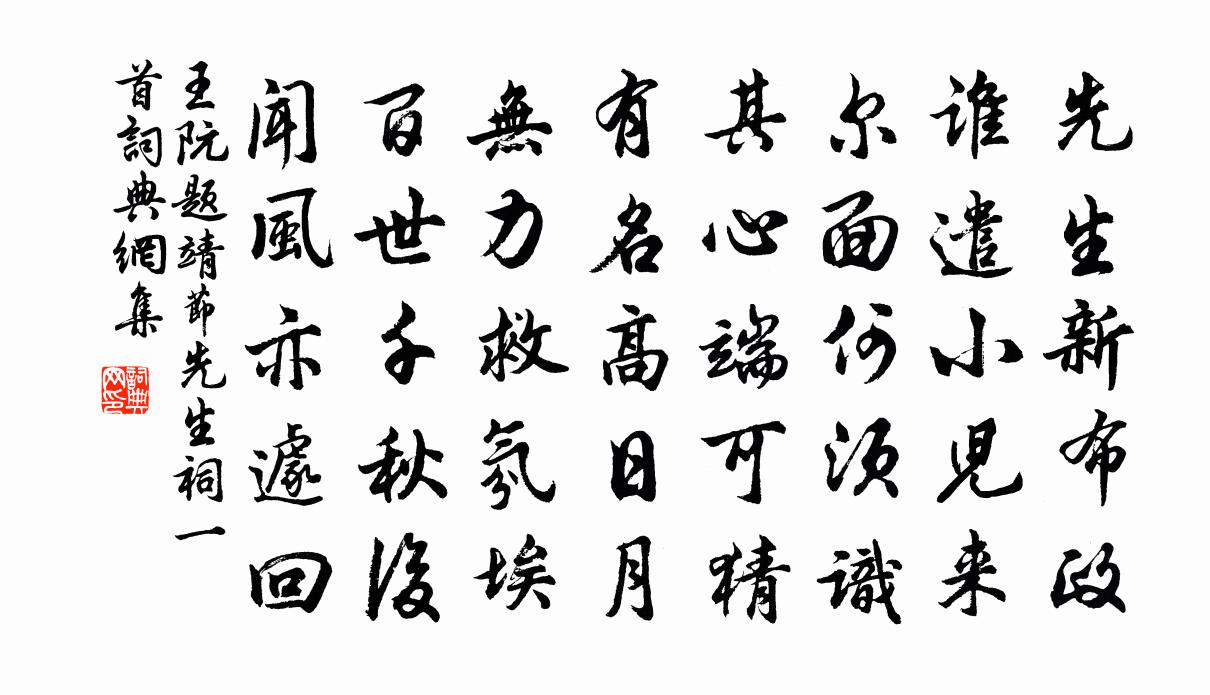 先生新布政
谁遣小児来
尔面何须識
其心端可猜
有名高日月
無力救氛埃
百世千秋後
聞風亦遽回
王阮题靖節先生祠一
首詞典網集
詞典
网印